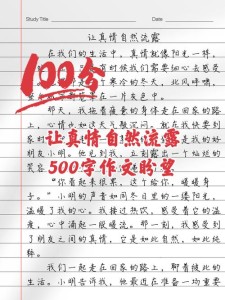 Study Title
Date
让真情自然流露
在我们的生活中，真情就像阳光一样，
时候我们需要细心去感
寒冷的冬天，北风呼啸，
在一片灰色中。
100分
那天，我拖着疲惫的身体走在回家的路
上，心情也如这天气般沉闷。就在我快要到家
让真情自然流露
的好友
小明。他见到我，立刻露出一个灿烂的
500字作文盼望
"你看起来很累，这个给你，暖暖身
子。"小明的声音如同冬日里的一缕阳光，
温暖了我的心。我接过热饮，感受着它的温
度，心中涌起一股暖流。那一刻，我感受到
了朋友之间的真情，它是如此自然，如此纯
粹。
我们一起走在回家的路上，聊着彼此的
生活。小明告诉我，他最近在准备一项重要